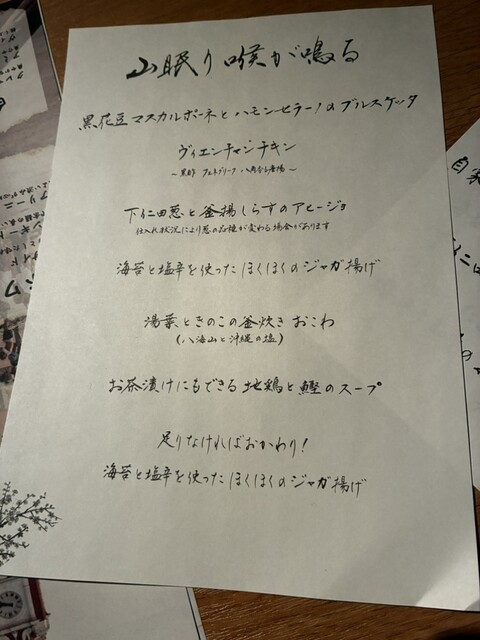 山眠り喉が鳴る
黒花豆マスカルポーネとハモンセラーノのブルスケッタ
ヴィエンチャンチキン
下仁田葱と釜揚しらすのアヒージョ
仕入れ状況により葱の品種が変わる場合があります
海苔と塩辛を使ったほくほくのジャガ揚げ
湯葉ときのこの釜炊きおこわ
(八海山と沖縄の塩)
お茶漬けにもできる地鶏と鰹のスープ
足りなければおかわり!
海苔と塩辛を使ったほくほくのジャガ揚げ